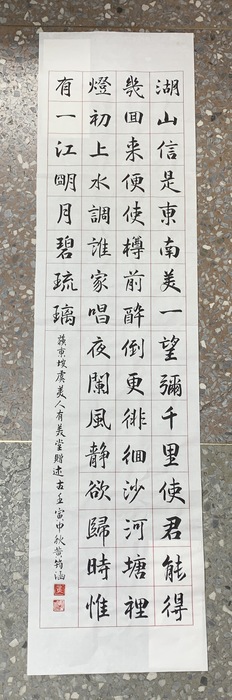 湖山信是東南美一望彌千里使君能得
幾回来便使樽前醉倒更徘徊沙河塘裡
燈初上水調誰家唱夜闌風靜欲歸時惟
有一江朙月碧琉璃
蘇東坡虞美人有美堂贈述古壬寅中秋黃筠涵